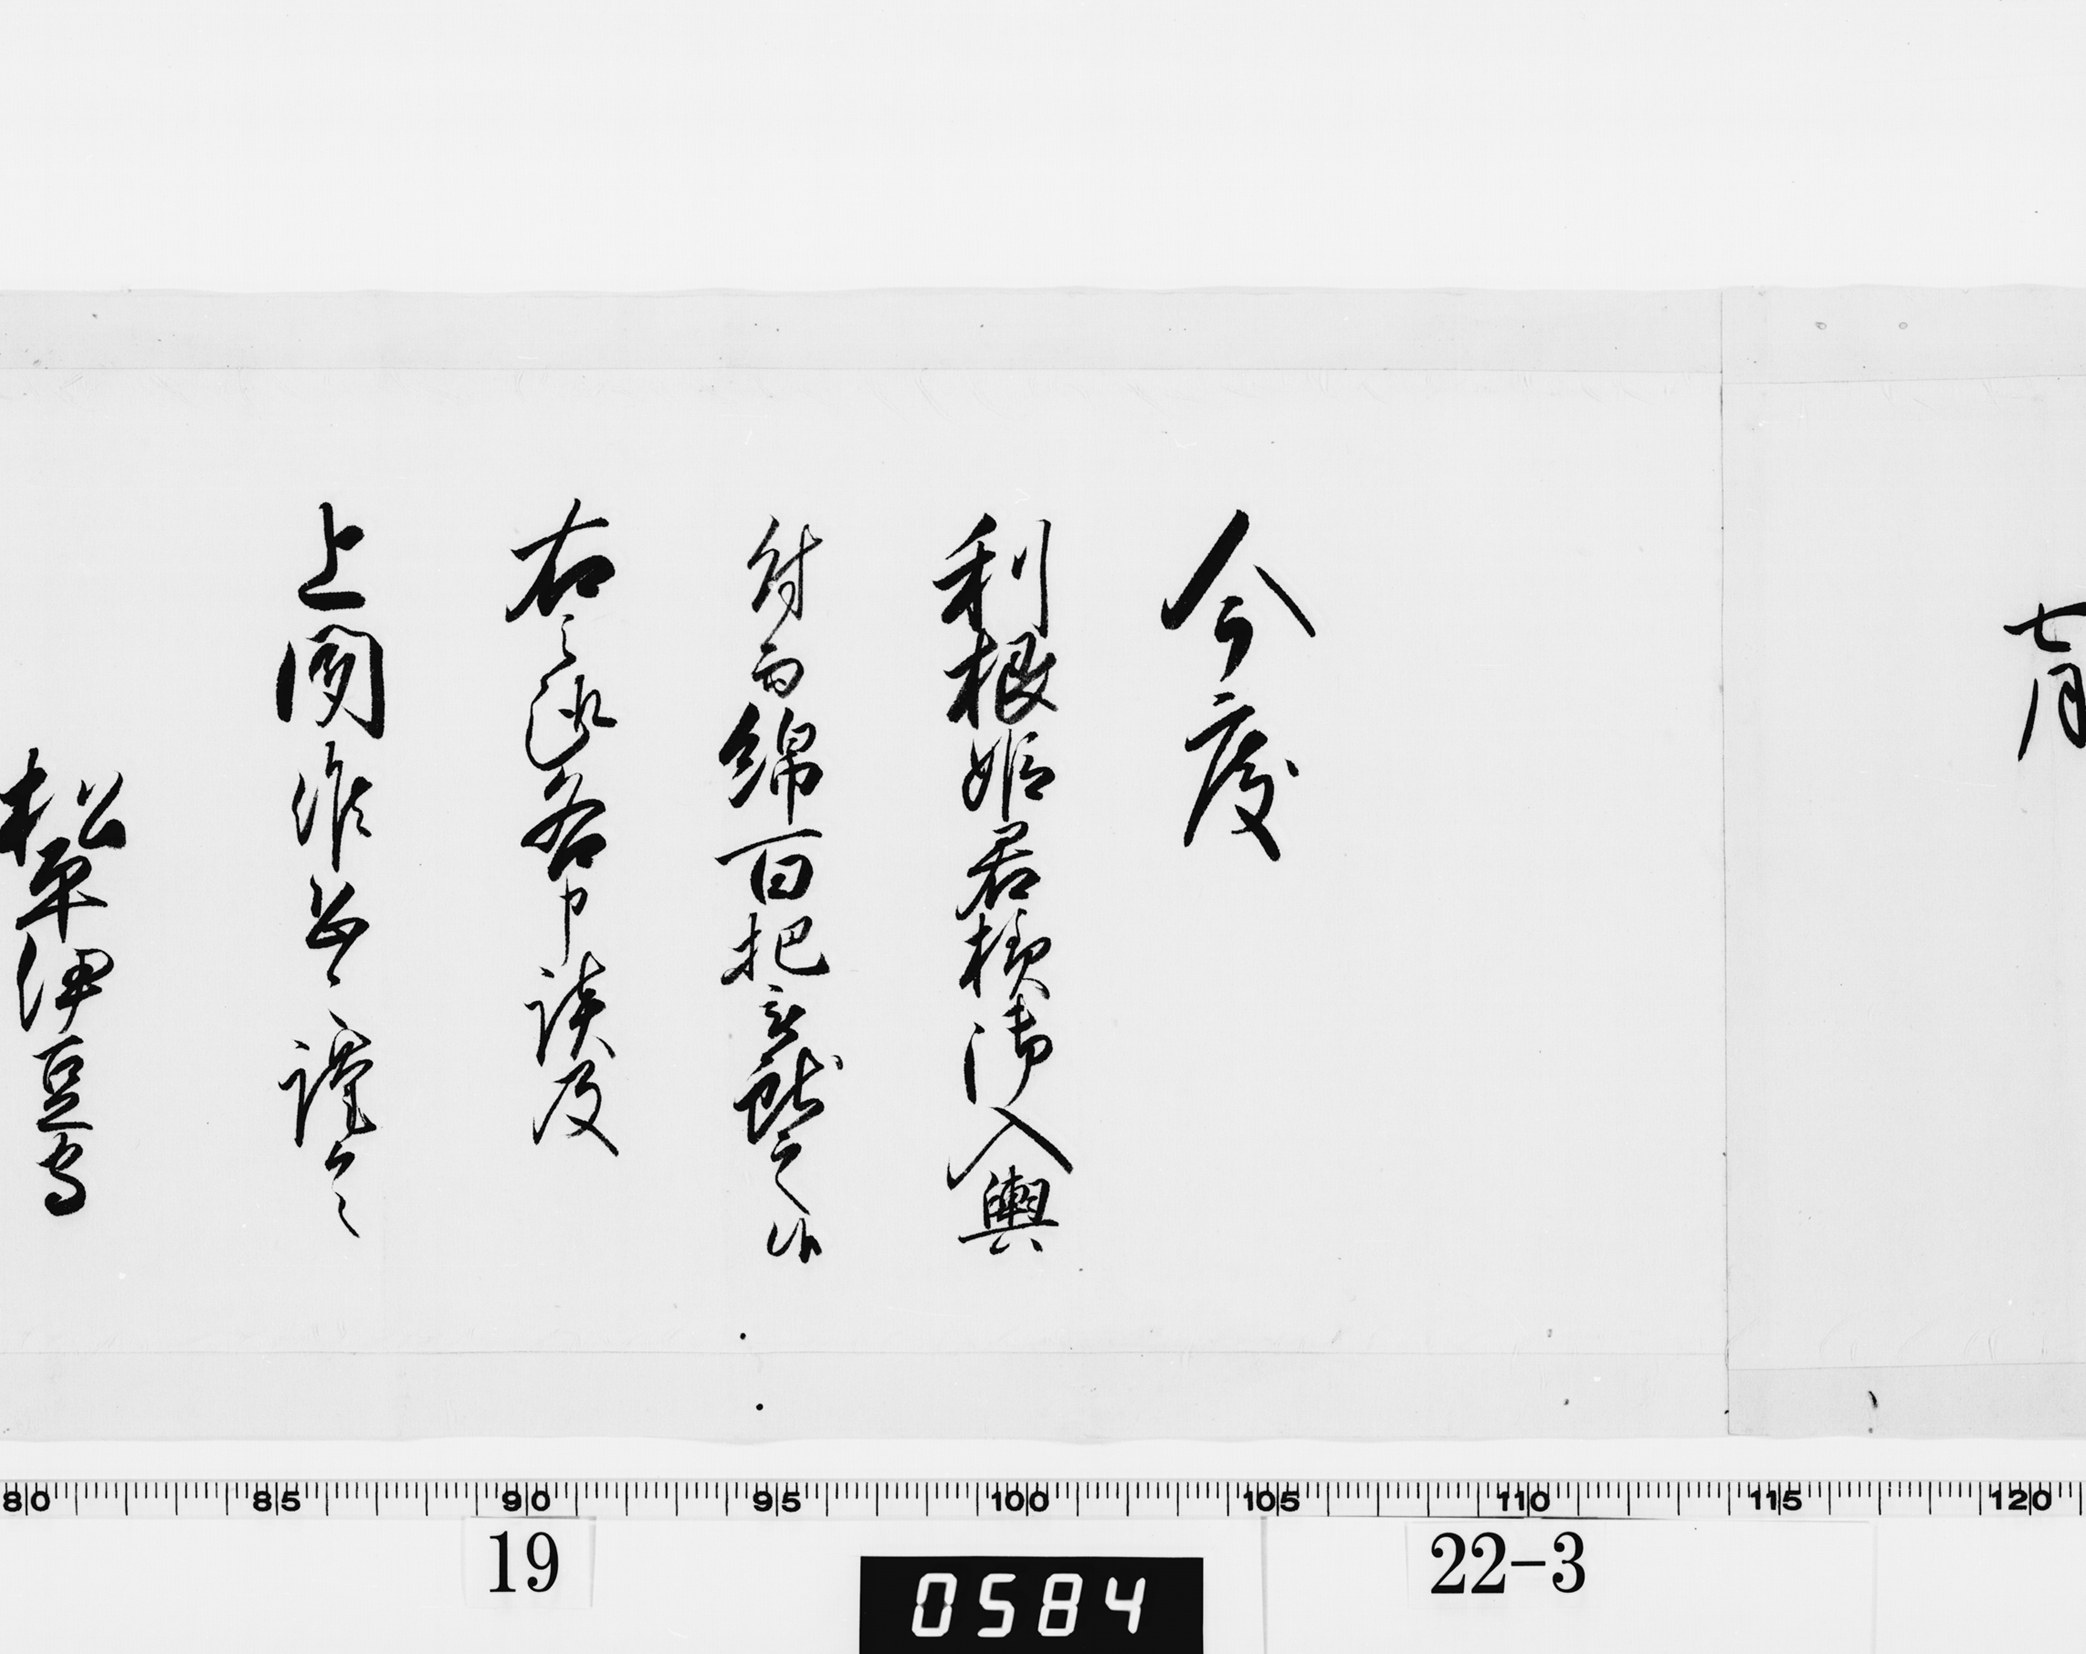 七月
今度
利根姫君様御入輿
付而綿百把
献之候
右之段各申談及
上聞候
謹言
松平伊豆守
80 85 90 95 100 105 110 115 120
19 0584 22-3